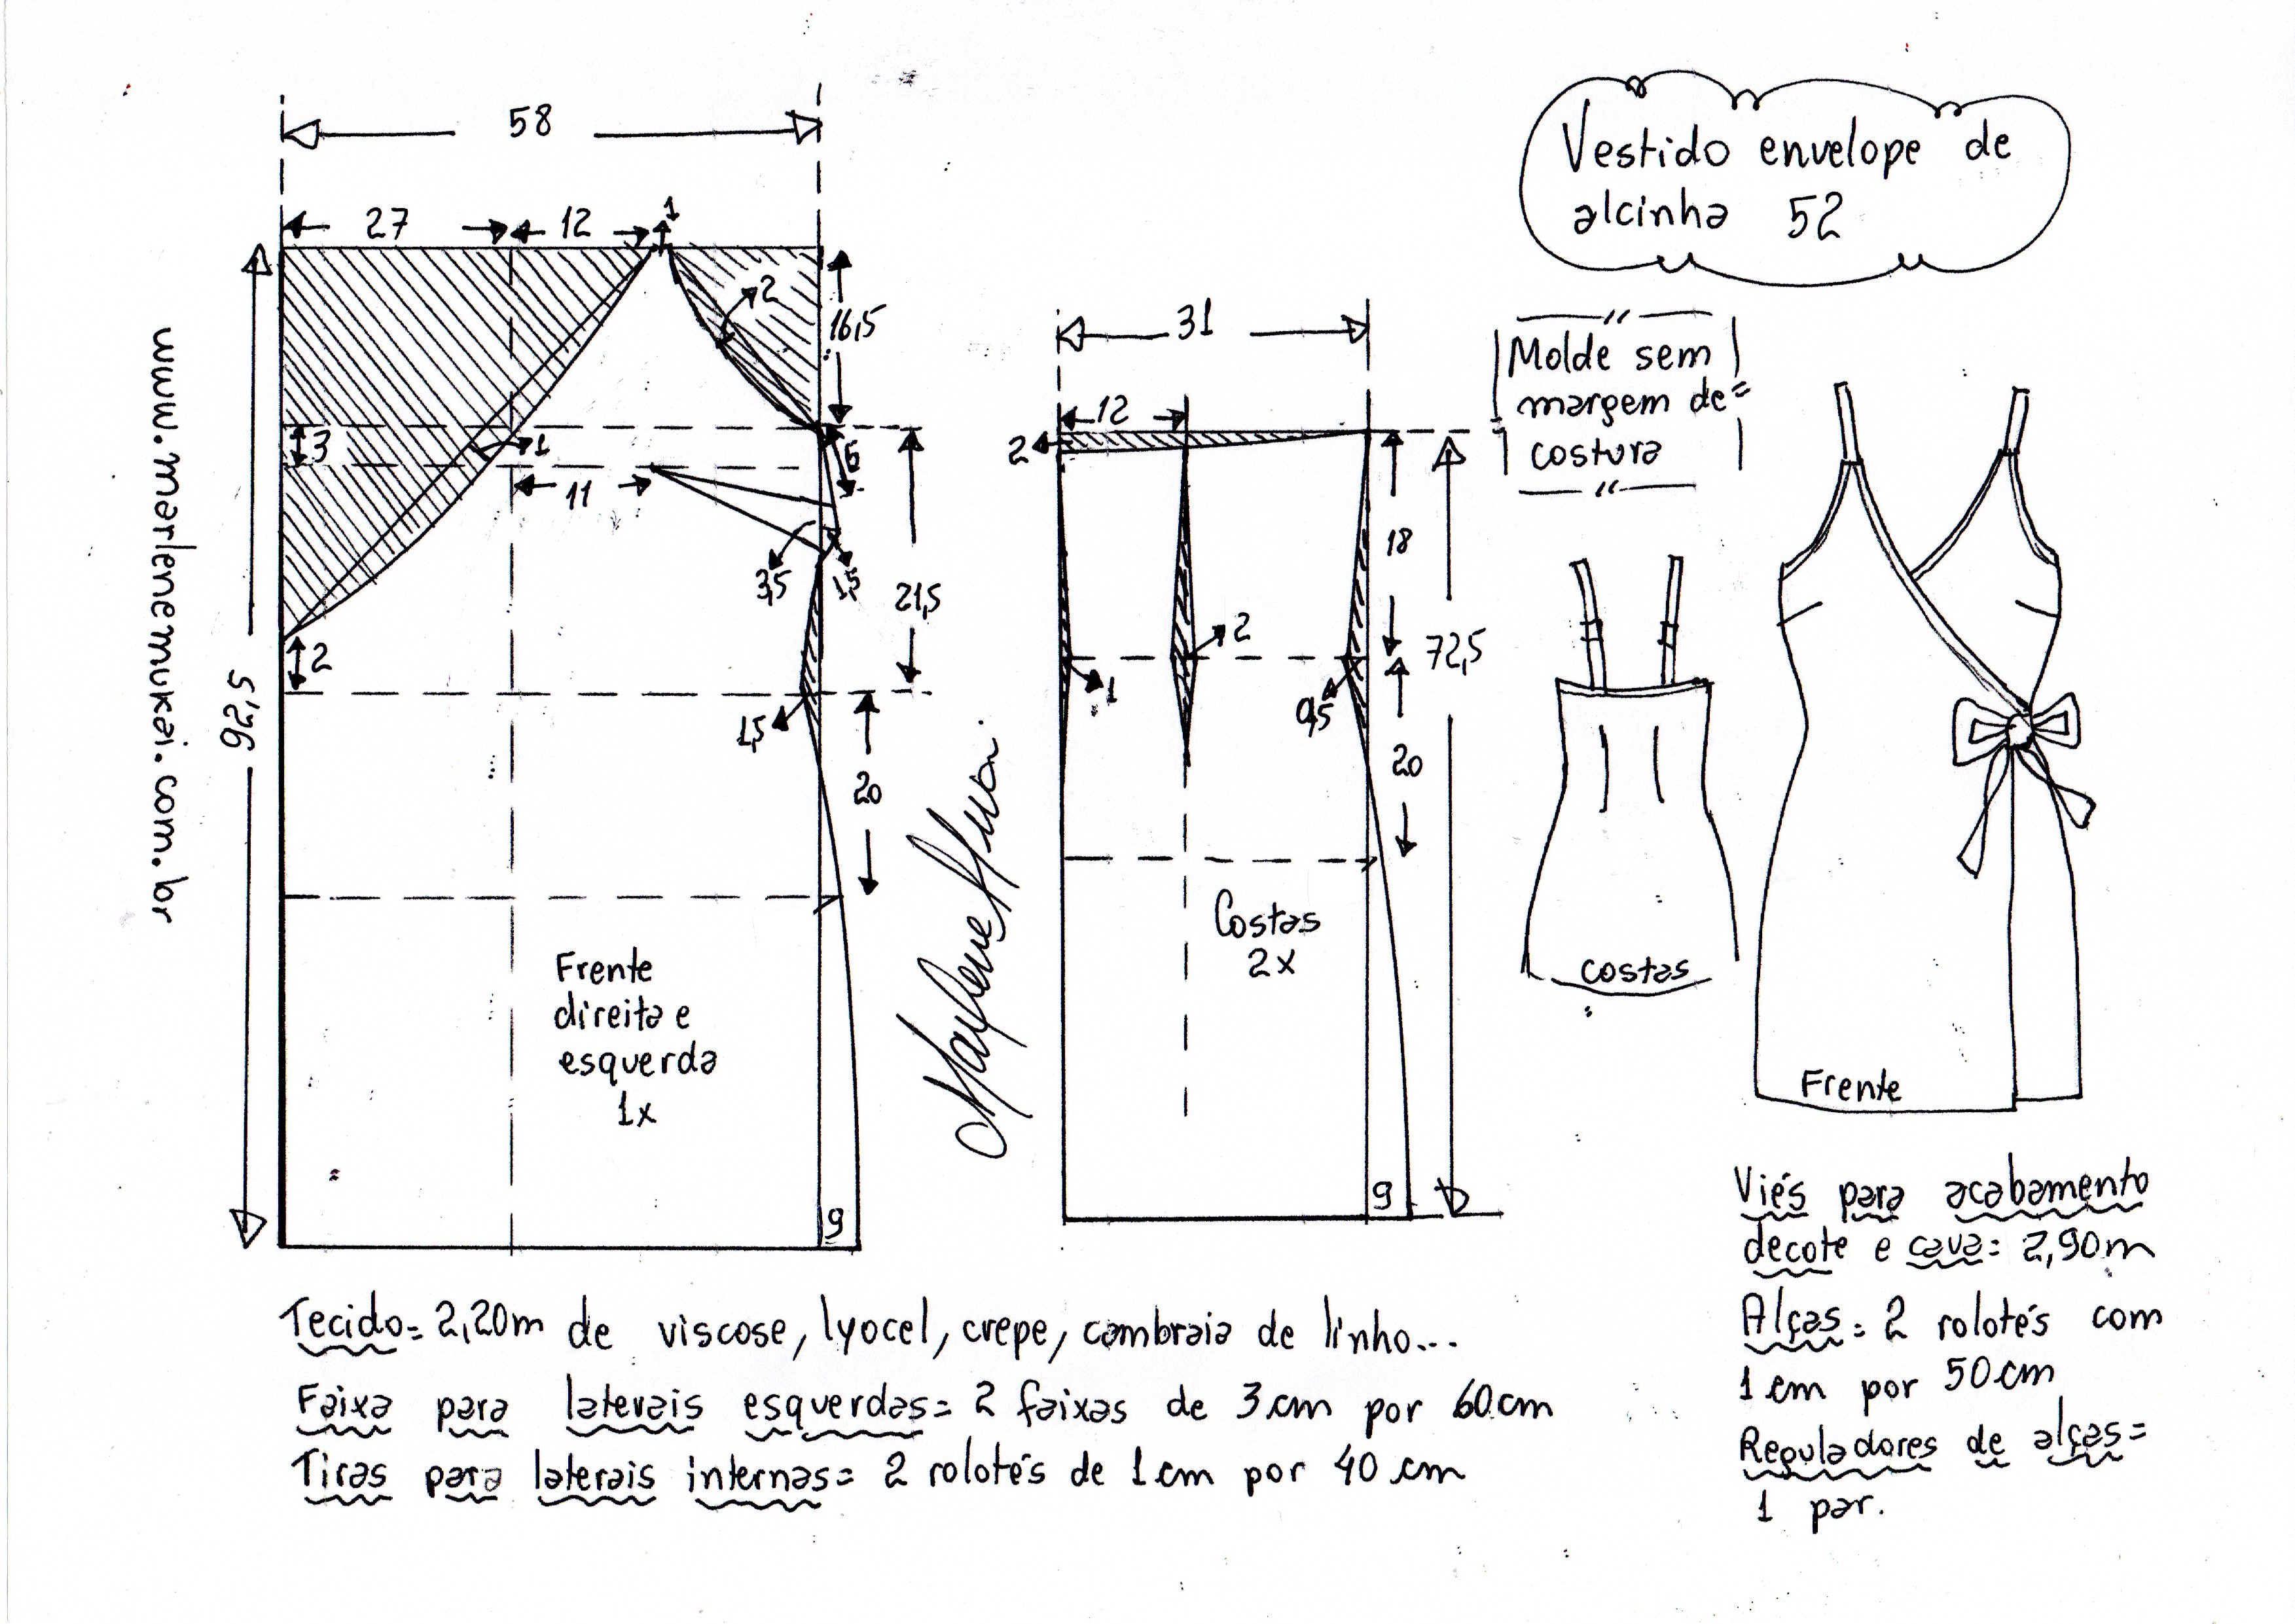 Vestido envelope de
alcinha 52
Molde sem
margem de=
costura
www.marlenemukai.com.br
58
27
12
1
2
16,5
3
1
11
6
3,5
1,5
21,5
2
92,5
1,5
20
Frente
direita e
esquerda
1x
9
31
12
2
18
72,5
2
1
0,5
20
Costas
2x
9
costas
Frente
Tecido= 2,20m de viscose, lyocel, crepe, cambraia de linho...
Faixa para laterais esquerdas= 2 faixas de 3 cm por 60cm
Tiras para laterais internas= 2 rolotés de 1cm por 40 cm
Viés para acabamento
decote e cava= 2,90m
Alças= 2 rolotés com
1 cm por 50cm
Reguladores de alças=
1 par.